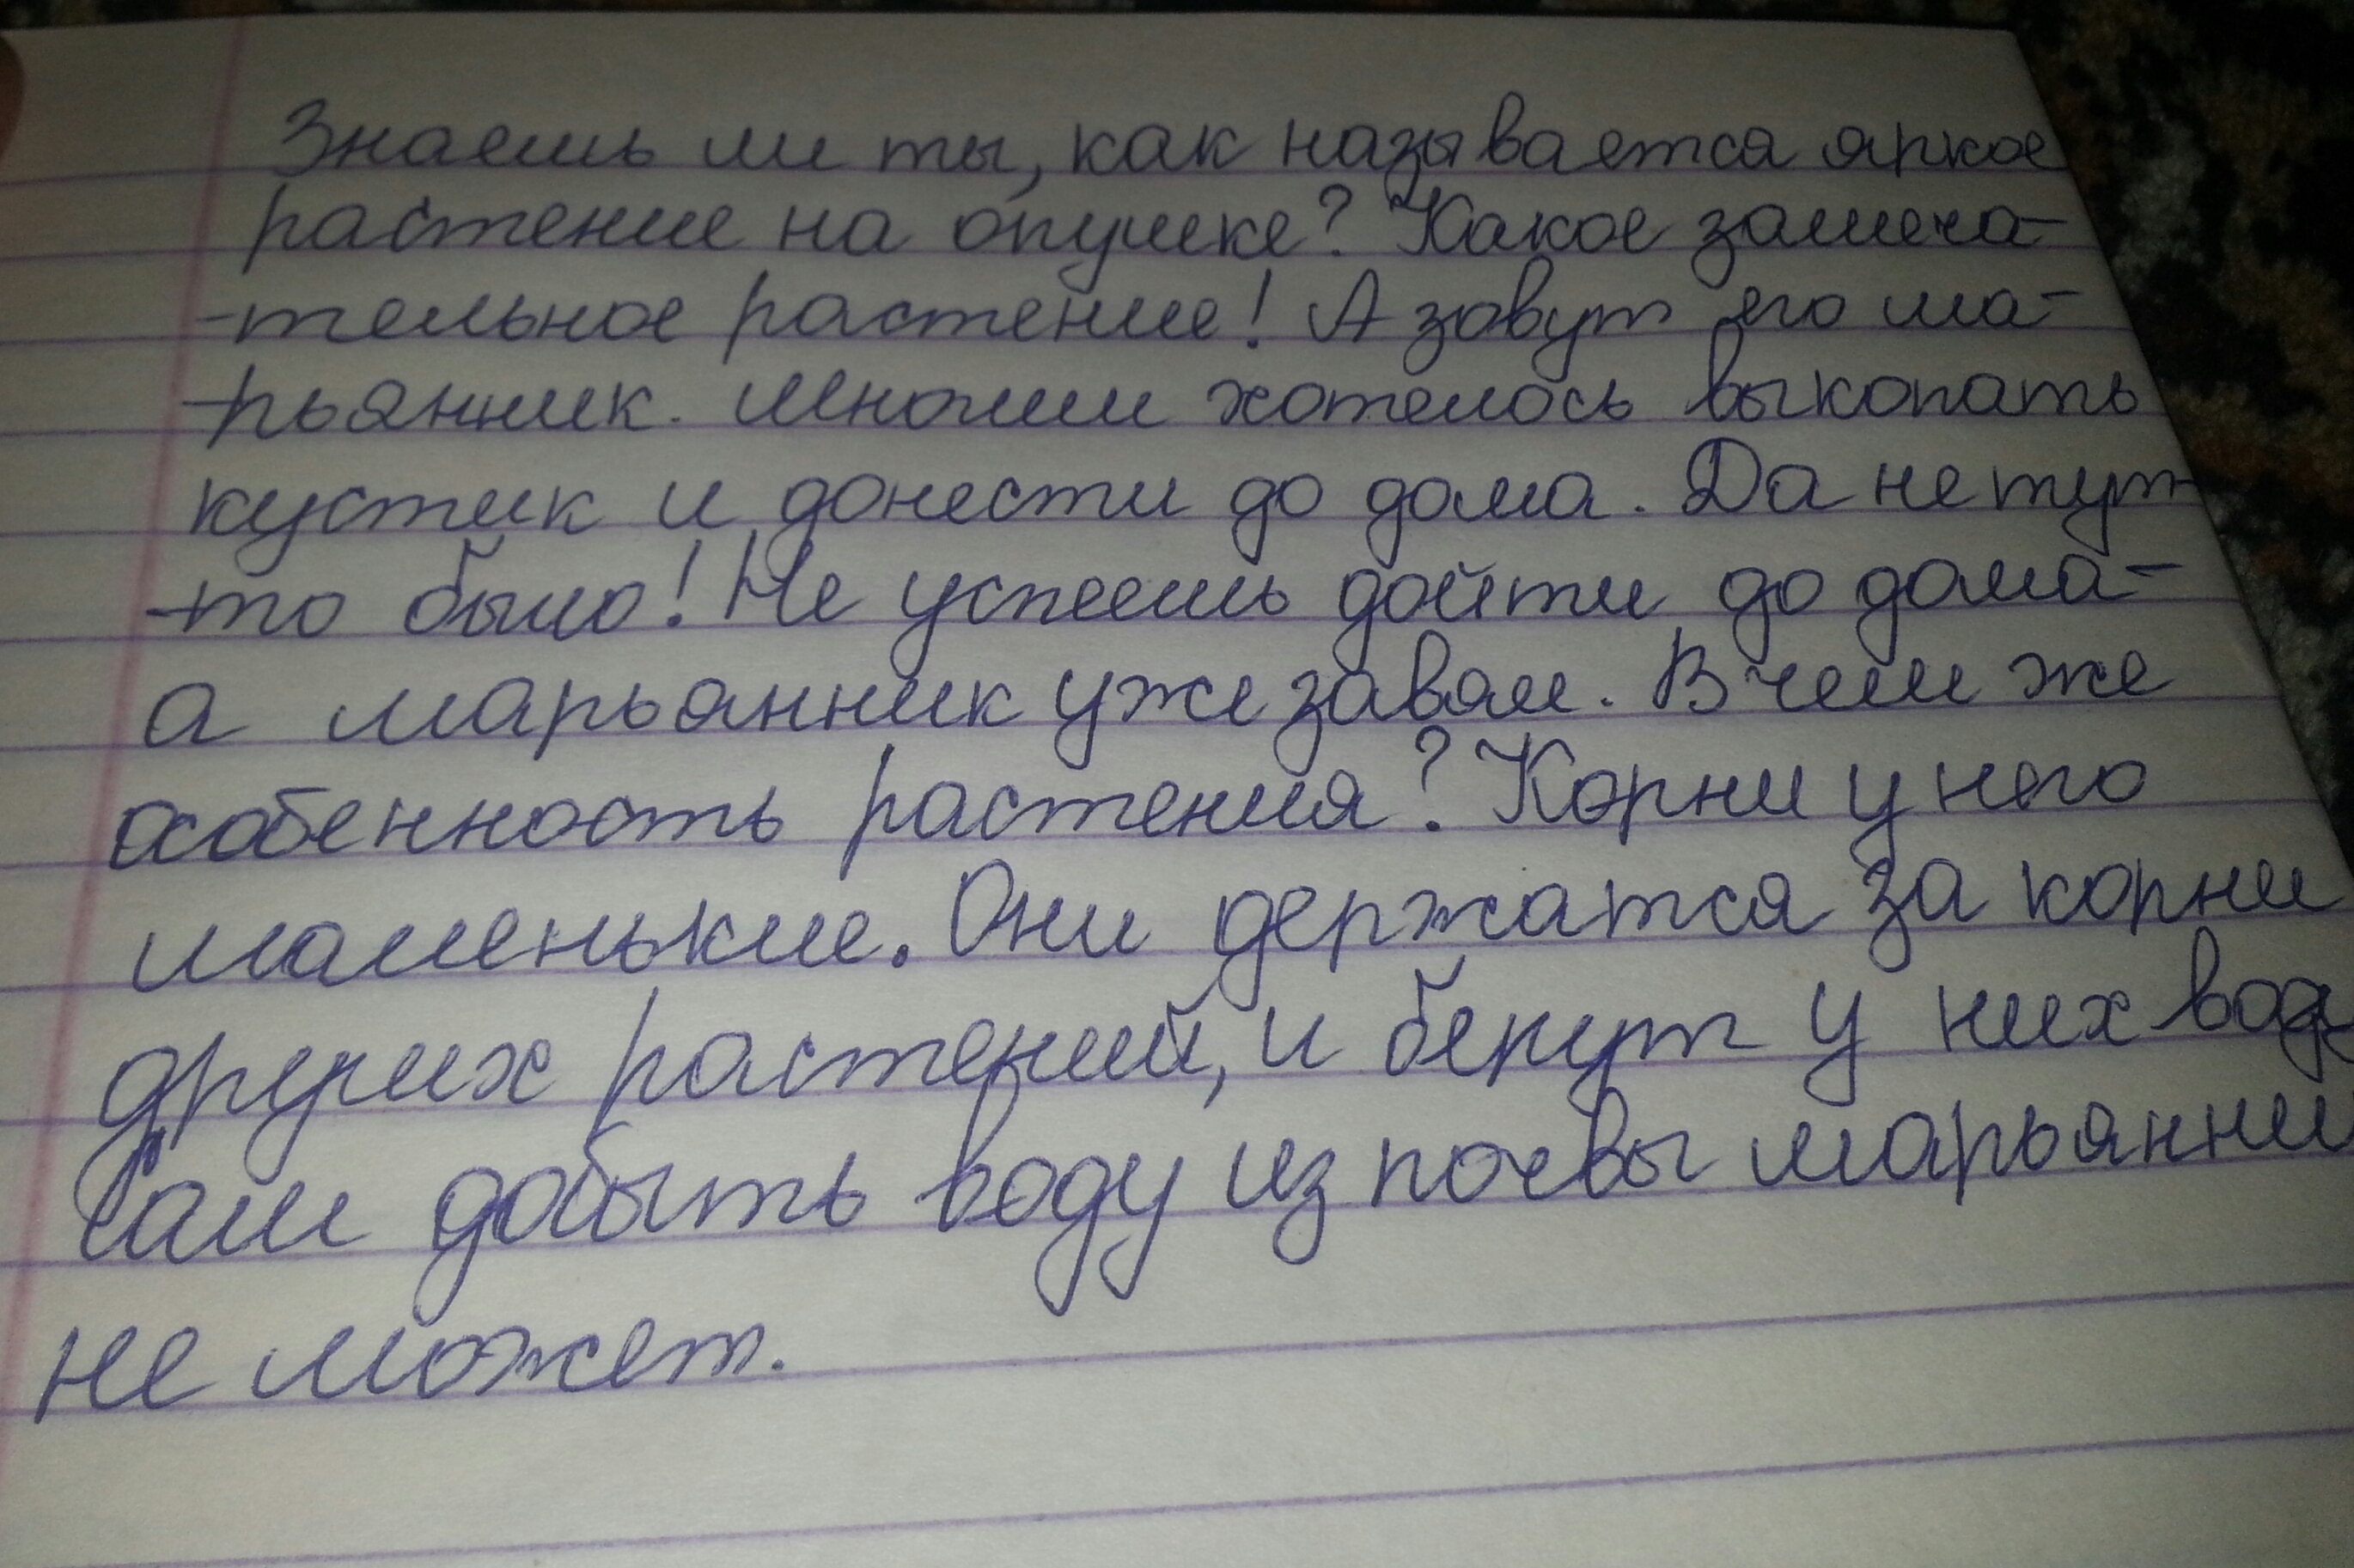 Знаешь ли ты, как называется яркое
растение на опушке? Какое замеча-
-тельное растение! А зовут его ма-
-рьянник. Многим хотелось выкопать
кустик и донести до дома. Да не тут-
-то было! Не успеешь дойти до дома-
а марьянник уже завял. В чем же
особенность растения? Корни у него
маленькие. Они держатся за корни
других растений, и берут у них воду
Сам добыть воду из почвы марьянни
не может.